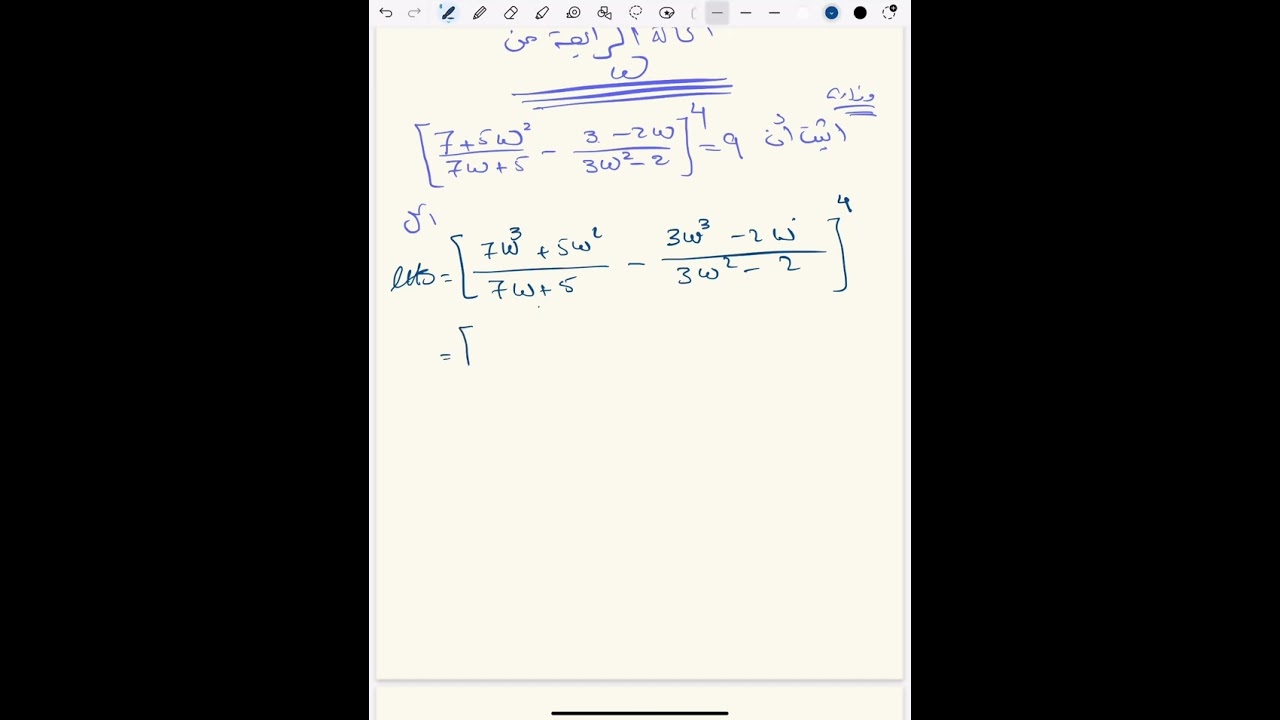 الحالة الرابعة من
ω
وزاري
اثبت أن [7+5ω²/7ω+5 − 3−2ω/3ω²−2]⁴ = 9
الحل
LHS = [7ω³+5ω²/7ω+5 − 3ω³−2ω/3ω²−2]⁴
= [